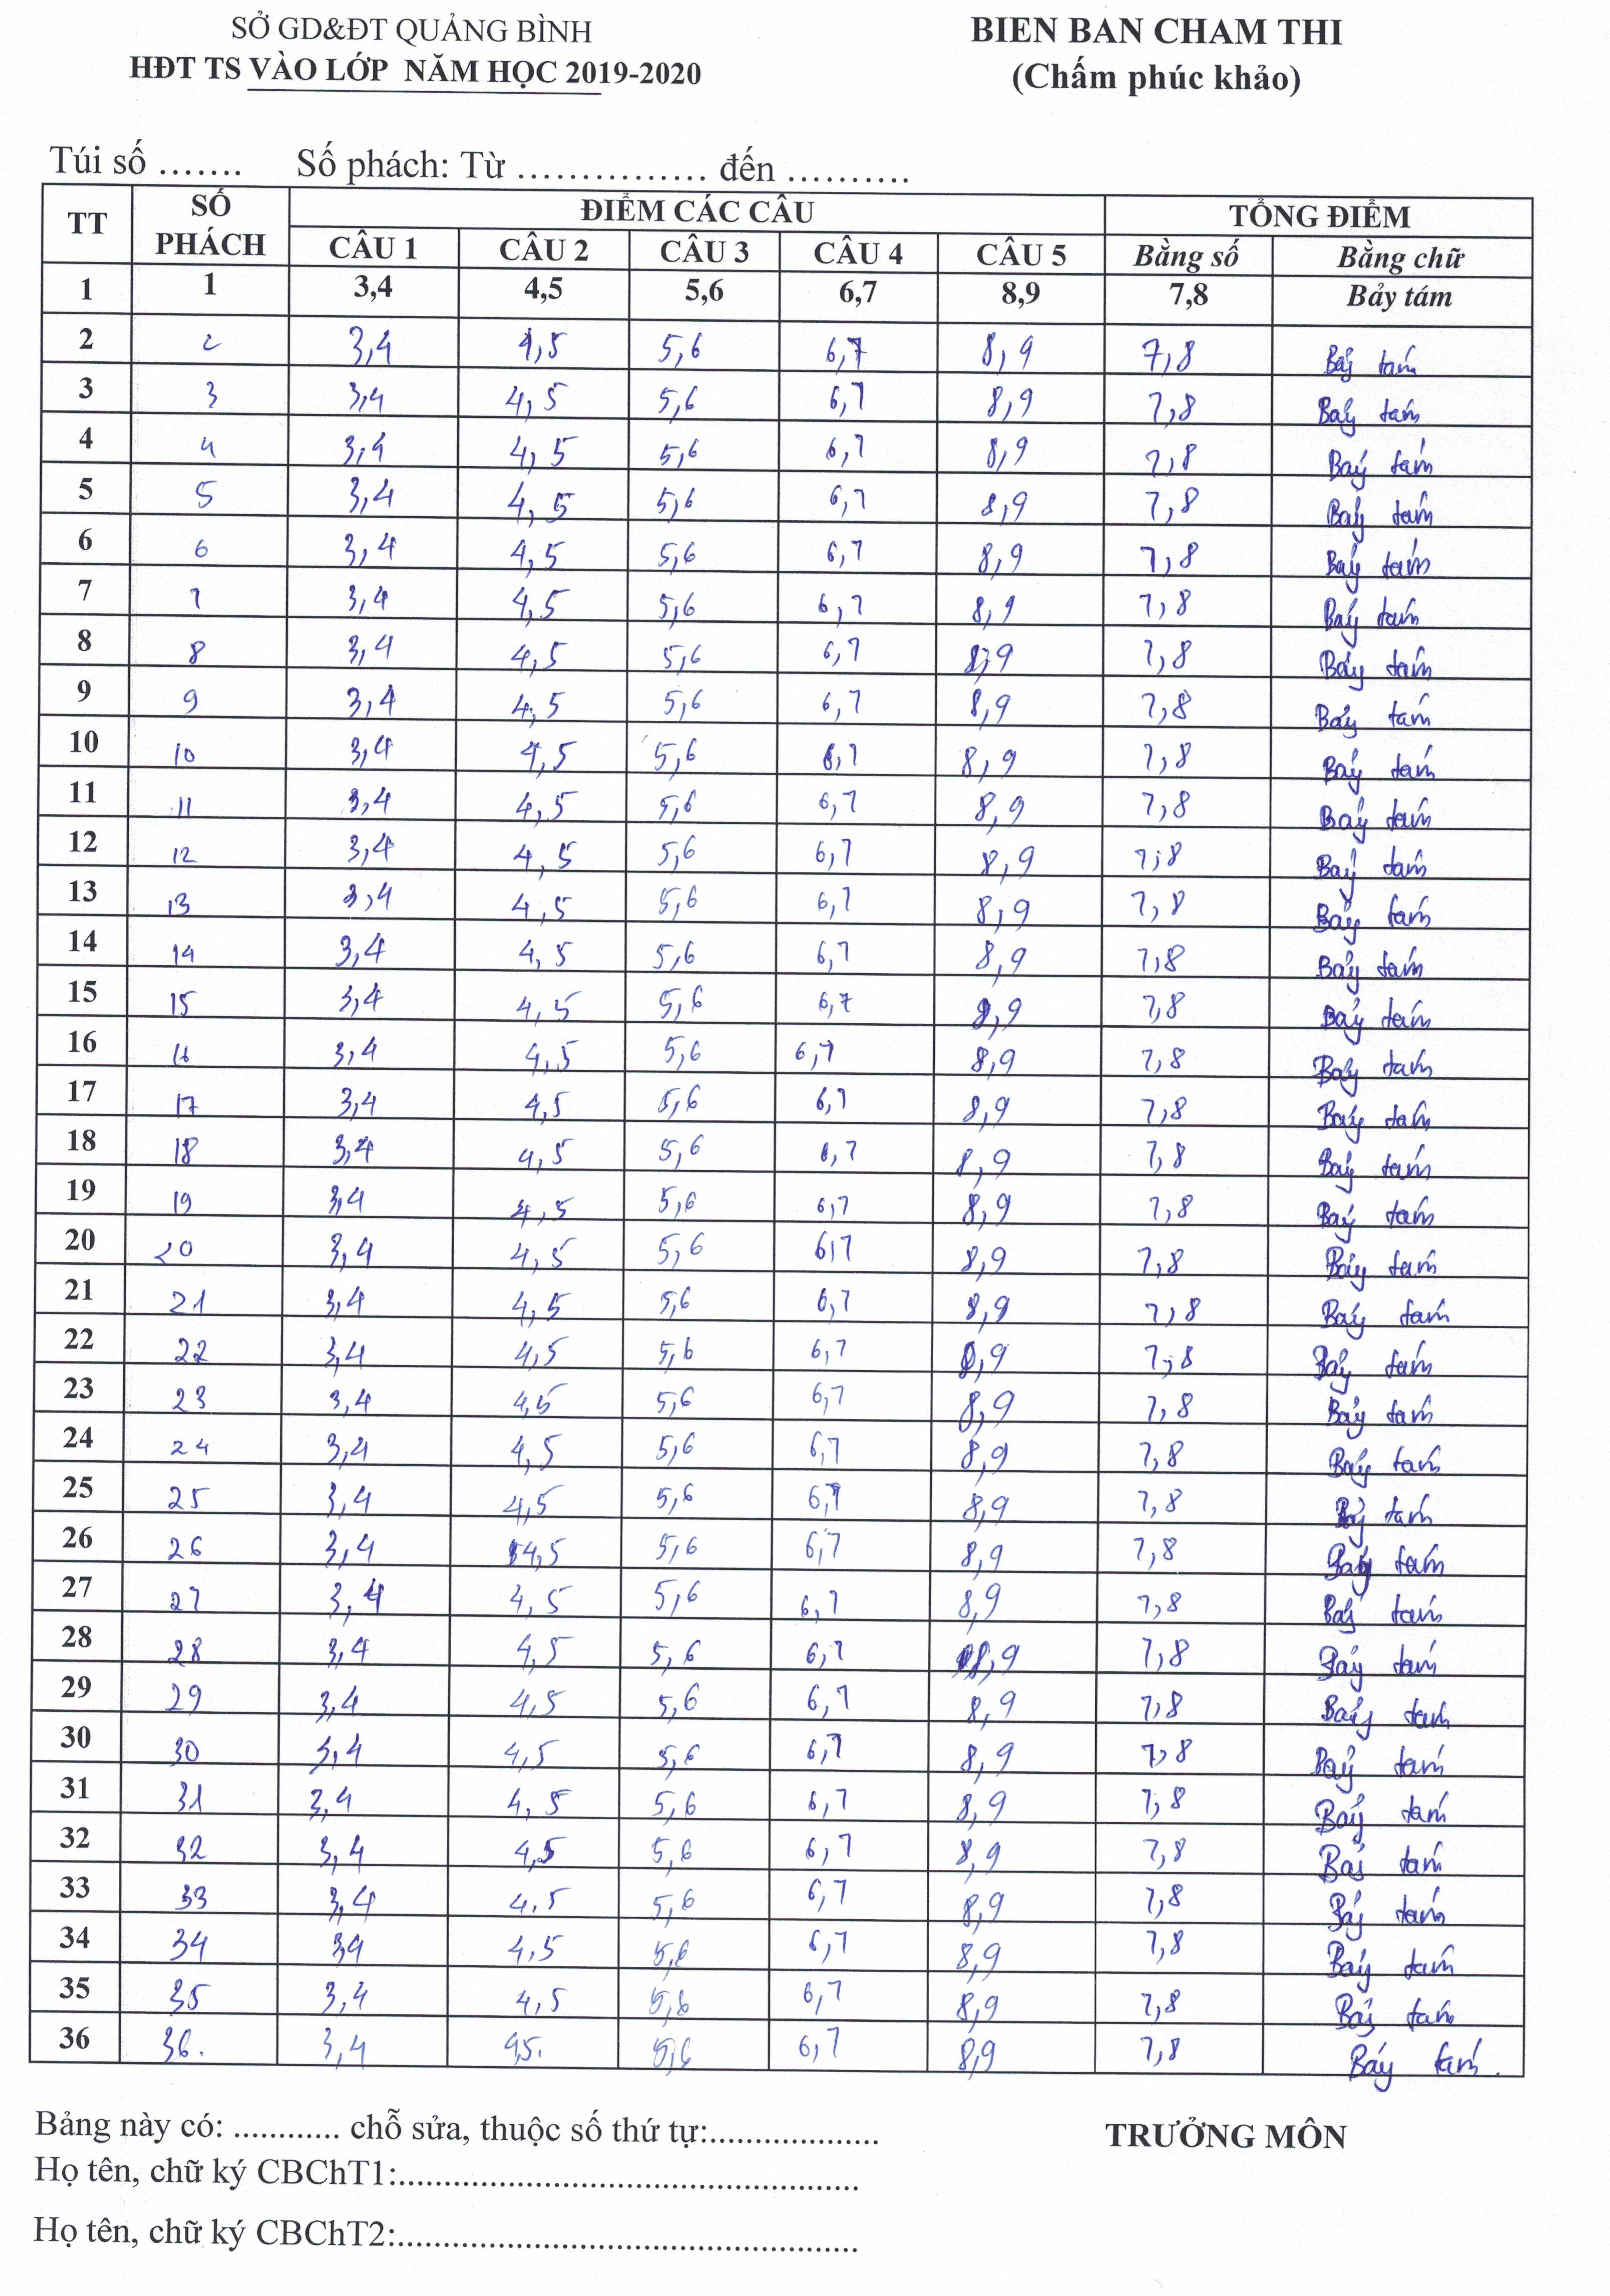 SỞ GD&ĐT QUẢNG BÌNH
HĐT TS VÀO LỚP NĂM HỌC 2019-2020
BIEN BAN CHAM THI
(Chấm phúc khảo)
Túi số ....... Số phách: Từ ............... đến ..........
TT SỐ PHÁCH ĐIỂM CÁC CÂU TỔNG ĐIỂM
CÂU 1 CÂU 2 CÂU 3 CÂU 4 CÂU 5 Bằng số Bằng chữ
1 1 3,4 4,5 5,6 6,7 8,9 7,8 Bảy tám
2 2 3,4 4,5 5,6 6,7 8,9 7,8 Bảy tám
3 3 3,4 4,5 5,6 6,7 8,9 7,8 Bảy tám
4 4 3,4 4,5 5,6 6,7 8,9 7,8 Bảy tám
5 5 3,4 4,5 5,6 6,7 8,9 7,8 Bảy tám
6 6 3,4 4,5 5,6 6,7 8,9 7,8 Bảy tám
7 7 3,4 4,5 5,6 6,7 8,9 7,8 Bảy tám
8 8 3,4 4,5 5,6 6,7 8,9 7,8 Bảy tám
9 9 3,4 4,5 5,6 6,7 8,9 7,8 Bảy tám
10 10 3,4 4,5 5,6 6,7 8,9 7,8 Bảy tám
11 11 3,4 4,5 5,6 6,7 8,9 7,8 Bảy tám
12 12 3,4 4,5 5,6 6,7 8,9 7,8 Bảy tám
13 13 3,4 4,5 5,6 6,7 8,9 7,8 Bảy tám
14 14 3,4 4,5 5,6 6,7 8,9 7,8 Bảy tám
15 15 3,4 4,5 5,6 6,7 8,9 7,8 Bảy tám
16 16 3,4 4,5 5,6 6,7 8,9 7,8 Bảy tám
17 17 3,4 4,5 5,6 6,7 8,9 7,8 Bảy tám
18 18 3,4 4,5 5,6 6,7 8,9 7,8 Bảy tám
19 19 3,4 4,5 5,6 6,7 8,9 7,8 Bảy tám
20 20 3,4 4,5 5,6 6,7 8,9 7,8 Bảy tám
21 21 3,4 4,5 5,6 6,7 8,9 7,8 Bảy tám
22 22 3,4 4,5 5,6 6,7 8,9 7,8 Bảy tám
23 23 3,4 4,5 5,6 6,7 8,9 7,8 Bảy tám
24 24 3,4 4,5 5,6 6,7 8,9 7,8 Bảy tám
25 25 3,4 4,5 5,6 6,7 8,9 7,8 Bảy tám
26 26 3,4 4,5 5,6 6,7 8,9 7,8 Bảy tám
27 27 3,4 4,5 5,6 6,7 8,9 7,8 Bảy tám
28 28 3,4 4,5 5,6 6,7 8,9 7,8 Bảy tám
29 29 3,4 4,5 5,6 6,7 8,9 7,8 Bảy tám
30 30 3,4 4,5 5,6 6,7 8,9 7,8 Bảy tám
31 31 3,4 4,5 5,6 6,7 8,9 7,8 Bảy tám
32 32 3,4 4,5 5,6 6,7 8,9 7,8 Bảy tám
33 33 3,4 4,5 5,6 6,7 8,9 7,8 Bảy tám
34 34 3,4 4,5 5,6 6,7 8,9 7,8 Bảy tám
35 35 3,4 4,5 5,6 6,7 8,9 7,8 Bảy tám
36 36. 3,4 4,5. 5,6 6,7 8,9 7,8 Bảy tám.
Bảng này có: ............ chỗ sửa, thuộc số thứ tự:...................
TRƯỞNG MÔN
Họ tên, chữ ký CBChT1:....................................................
Họ tên, chữ ký CBChT2:....................................................